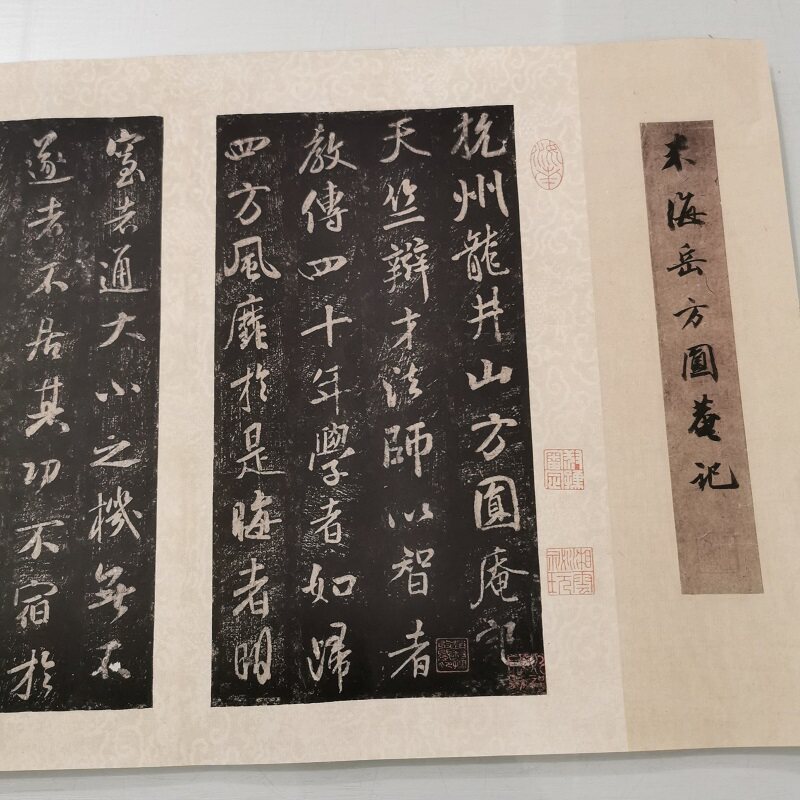 米海岳方圓菴記
杭州龍井山方圓庵記
天竺辯才法師以智者
教傳四十年學者如歸
四方風靡於是晦者明
窒者通大小之機無不
遂者不居其功不宿於